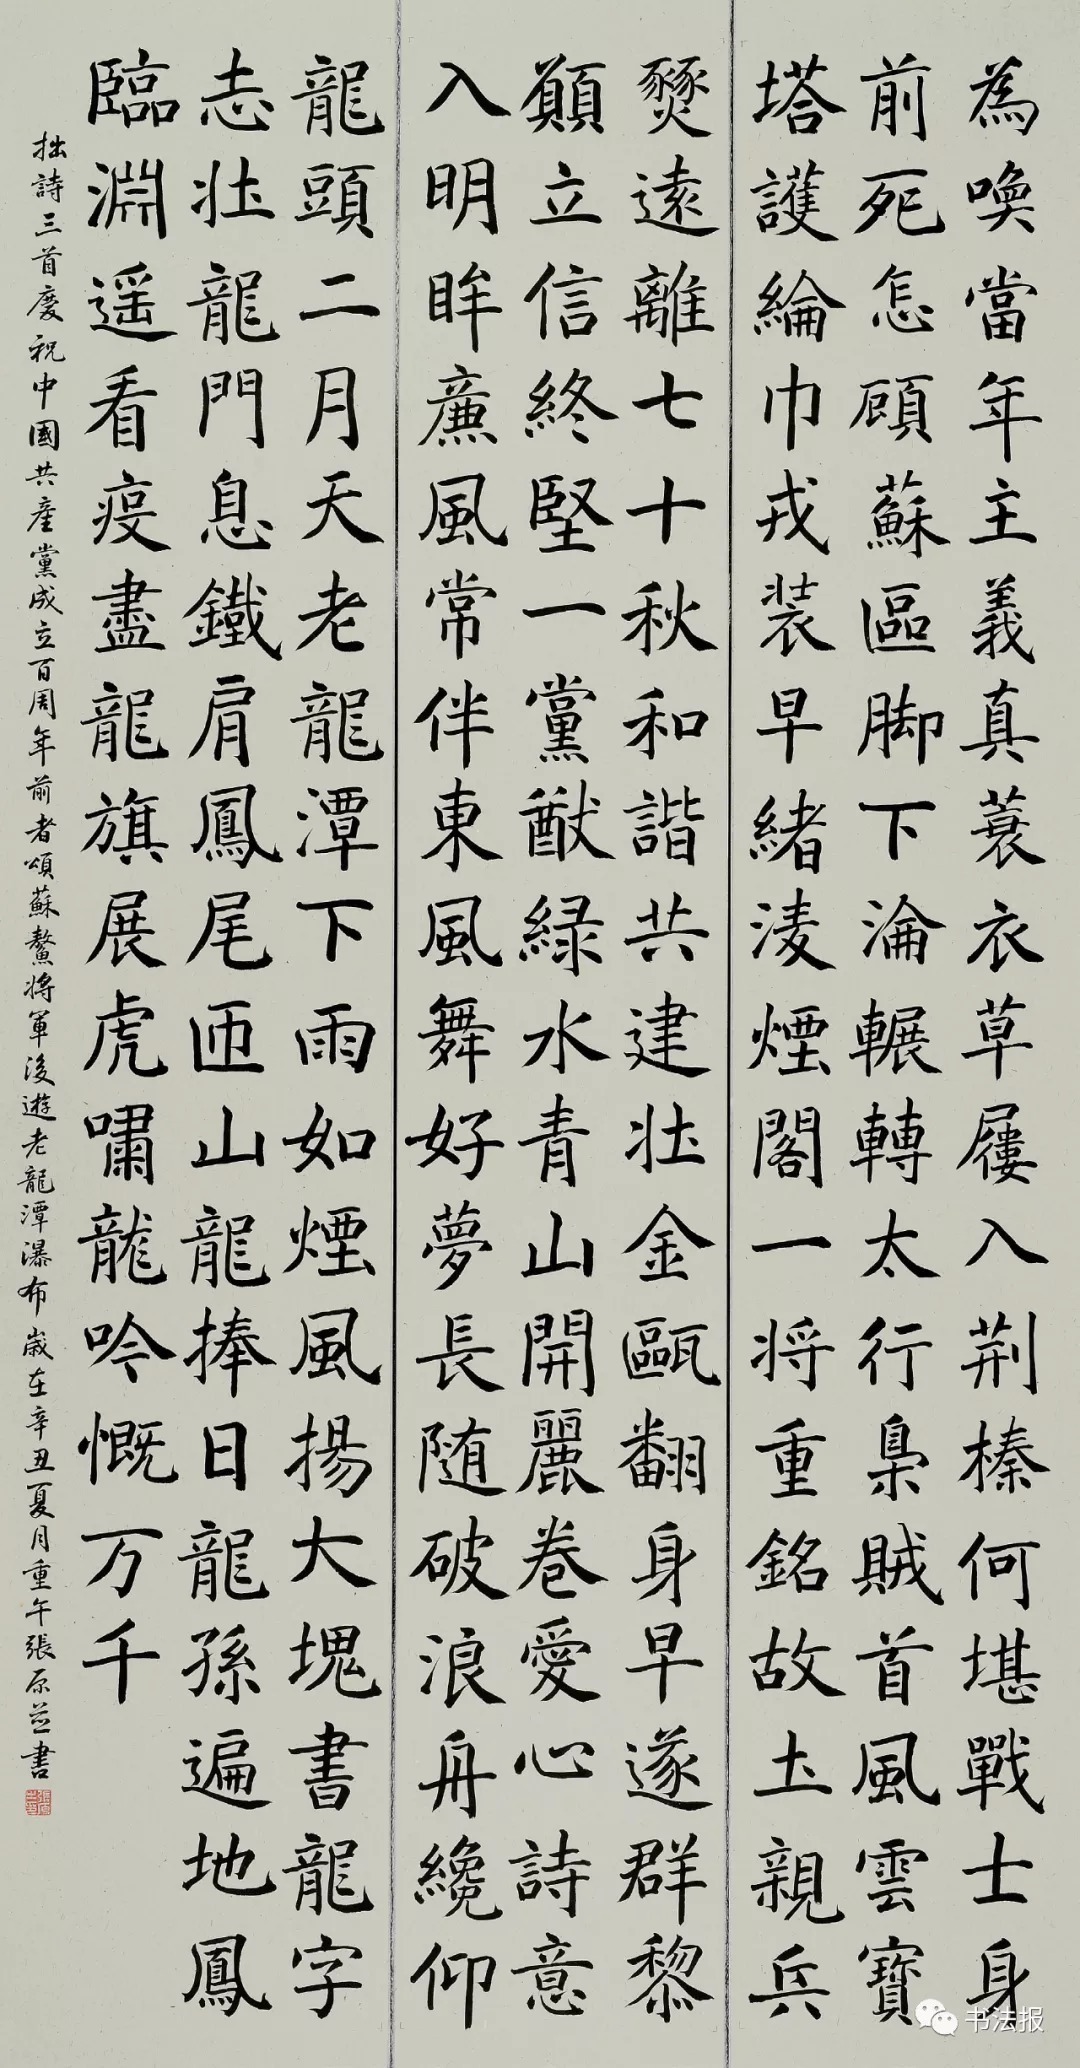 為喚當年主義真蓑衣草屨入荆榛何堪戰士身
前死怎顧蘇區脚下淪輾轉太行梟賊首風雲寶
塔護綸巾戎装早緒淩煙閣一将重銘故土親兵
燹遠離七十秋和諧共建壮金甌翻身早遂群黎
願立信終堅一黨猷緑水青山開麗巻愛心詩意
入明眸廉風常伴東風舞好夢長随破浪舟纔仰
龍頭二月天老龍潭下雨如煙風揚大塊書龍字
志壮龍門息鐵肩鳳尾匝山龍捧日龍孫遍地鳳
臨淵遥看疫盡龍旗展虎嘯龍吟慨万千
拙詩三首慶祝中國共産黨成立百周年前者頌蘇鰲将軍後遊老龍潭瀑布歲在辛丑夏月重午張原並書
书法报